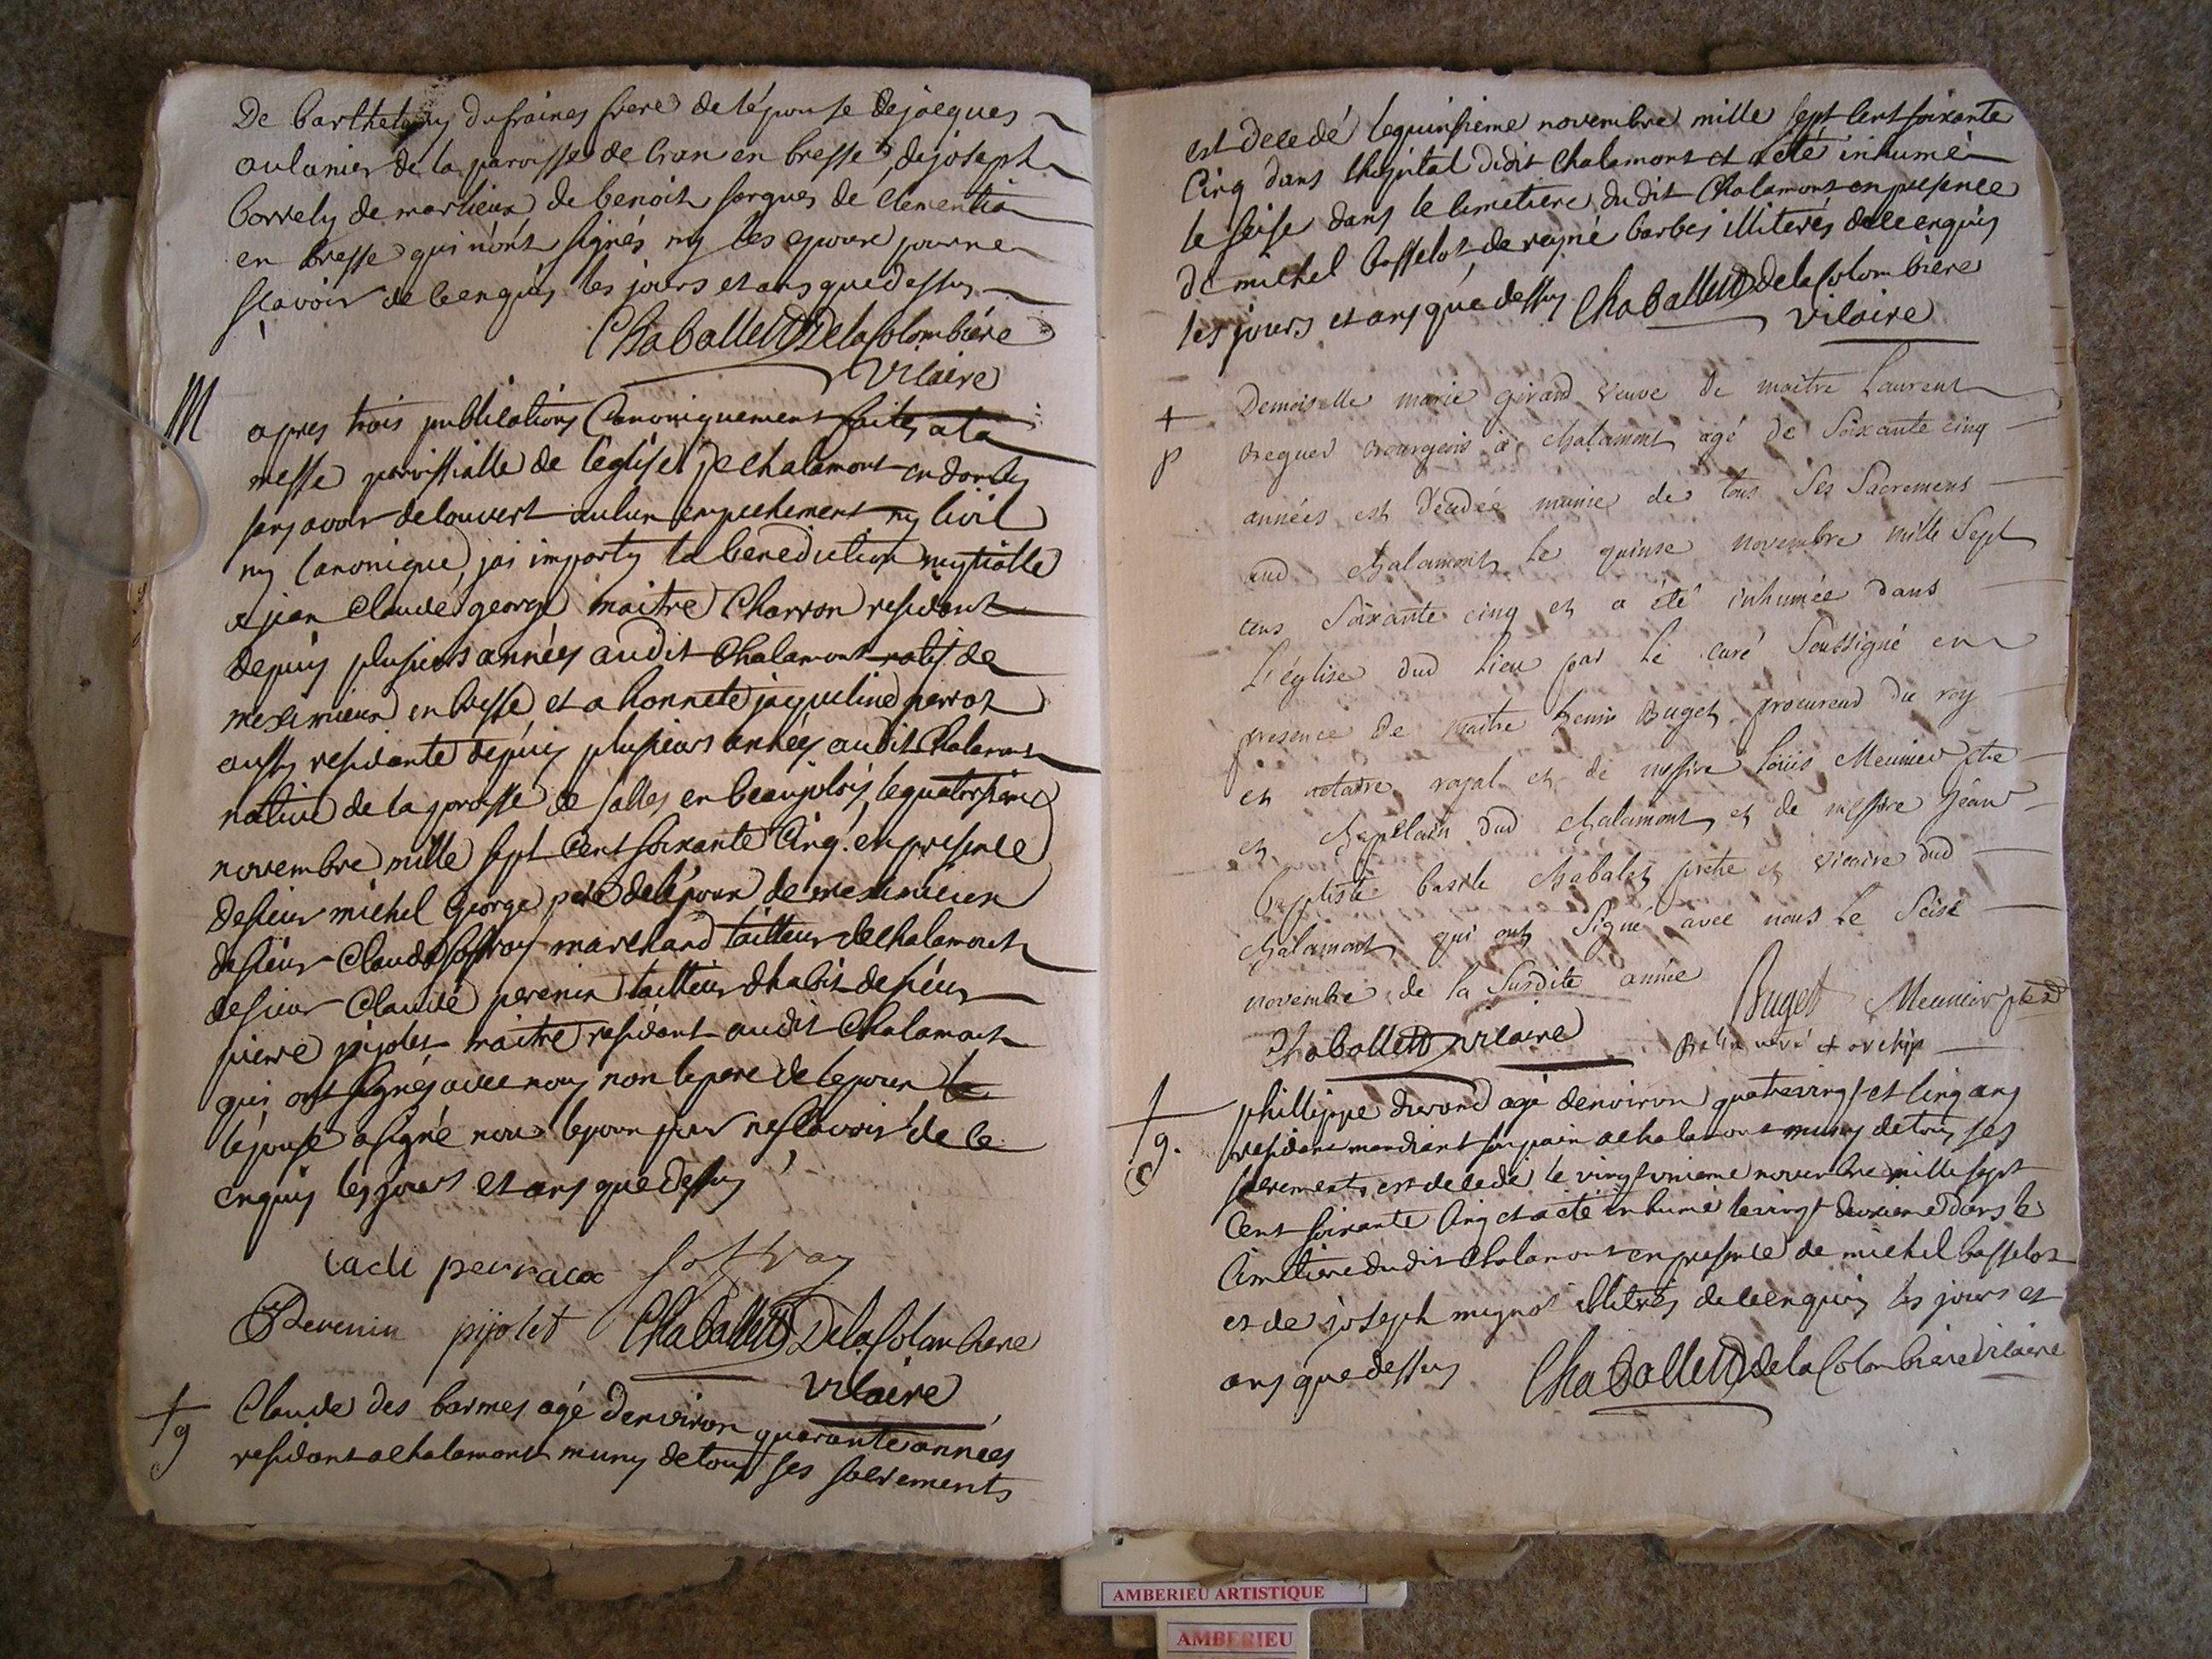 De barthelemy dufraines frere de l'épouse de jacques
aulanier de la paroisse de Cran en bresse, de joseph
borrely de marlieux, de benoit forgues de clementia
en bresse qui n'ont signés ny les epoux pour ne
scavoir de ce enquis les jours et ans que dessus
Chaballet De la Colombière
Vicaire
M
apres trois publications Canoniquement faites a la
messe paroissialle de l'eglise de chalamont en dombes
sans avoir decouvert aucun empechement ny civil
ny canonique, jai imparty la benediction nuptialle
a jean Claude george maitre Charron residant
depuis plusieurs années audit Chalamont natif de
meximieux en bresse et a honnete jacqueline perrot
aussy residante depuis plusieurs années audit Chalamont
native de la paroisse de salles en beaujolois, le quatorsieme
novembre mille sept cent soixante Cinq. en presence
de sieur michel George pere de l'epoux de meximieux
de sieur Claude soffray marchand tailleur de chalamont
de sieur Claude perenin tailleur d'habit de sieur
pierre pijolet maitre residant audit Chalamont
qui ont signés avec nous non le pere de lepoux
lépouse a signé non lepoux pour ne scavoir de ce
enquis les jours et ans que dessus
perraux soffray
Perenin pijolet Chaballet De la Colombiere
Vicaire
† g
Claude des barmes agé d'environ quarante années
residant a chalamont muny de tous ses sacrements
est decedé le quinsieme novembre mille sept cent soixante
Cinq dans l'hopital dudit Chalamont et a été inhumé
le seise dans le cimetiere dudit Chalamont en presence
de michel basselot, de reyné barbes illiterés de ce enquis
les jours et ans que dessus Chaballet de la Colombière
vicaire
†
p
Demoiselle marie girard veuve de maitre Laurent
Breguer Bourgeois à chalamont agé de soixante cinq
années est décédée munie de tous ses Sacremens
aud chalamont le quinse novembre mille sept
cens soixante cinq et a été inhumée dans
L'église dud lieu par le curé soussigné en
presence de maitre henri Buget procureur du roy
et notaire royal et de messire louis Meunier ptre
et chapelain dud chalamont et de messire Jean
Baptiste basile chabalet pretre et vicaire dud
chalamont qui ont signé avec nous le seise
novembre de la susdite année Buget Meunier ptre
Chaballet vicaire curé
† g.
phillippe agé d'environ quatrevingt et cinq ans
residant mandiant son pain a chalamont muny de tous ses
sacrements est decedé le vingt unieme novembre mille sept
cent soixante Cinq et a été inhumé le vingt deuxieme dans le
Cimetiere dudit Chalamont en presence de michel basselot
et de joseph mignot illiterés de ce enquis les jours et
ans que dessus Chaballet de la Colombiere vicaire
AMBERIEU ARTISTIQUE
AMBERIEU